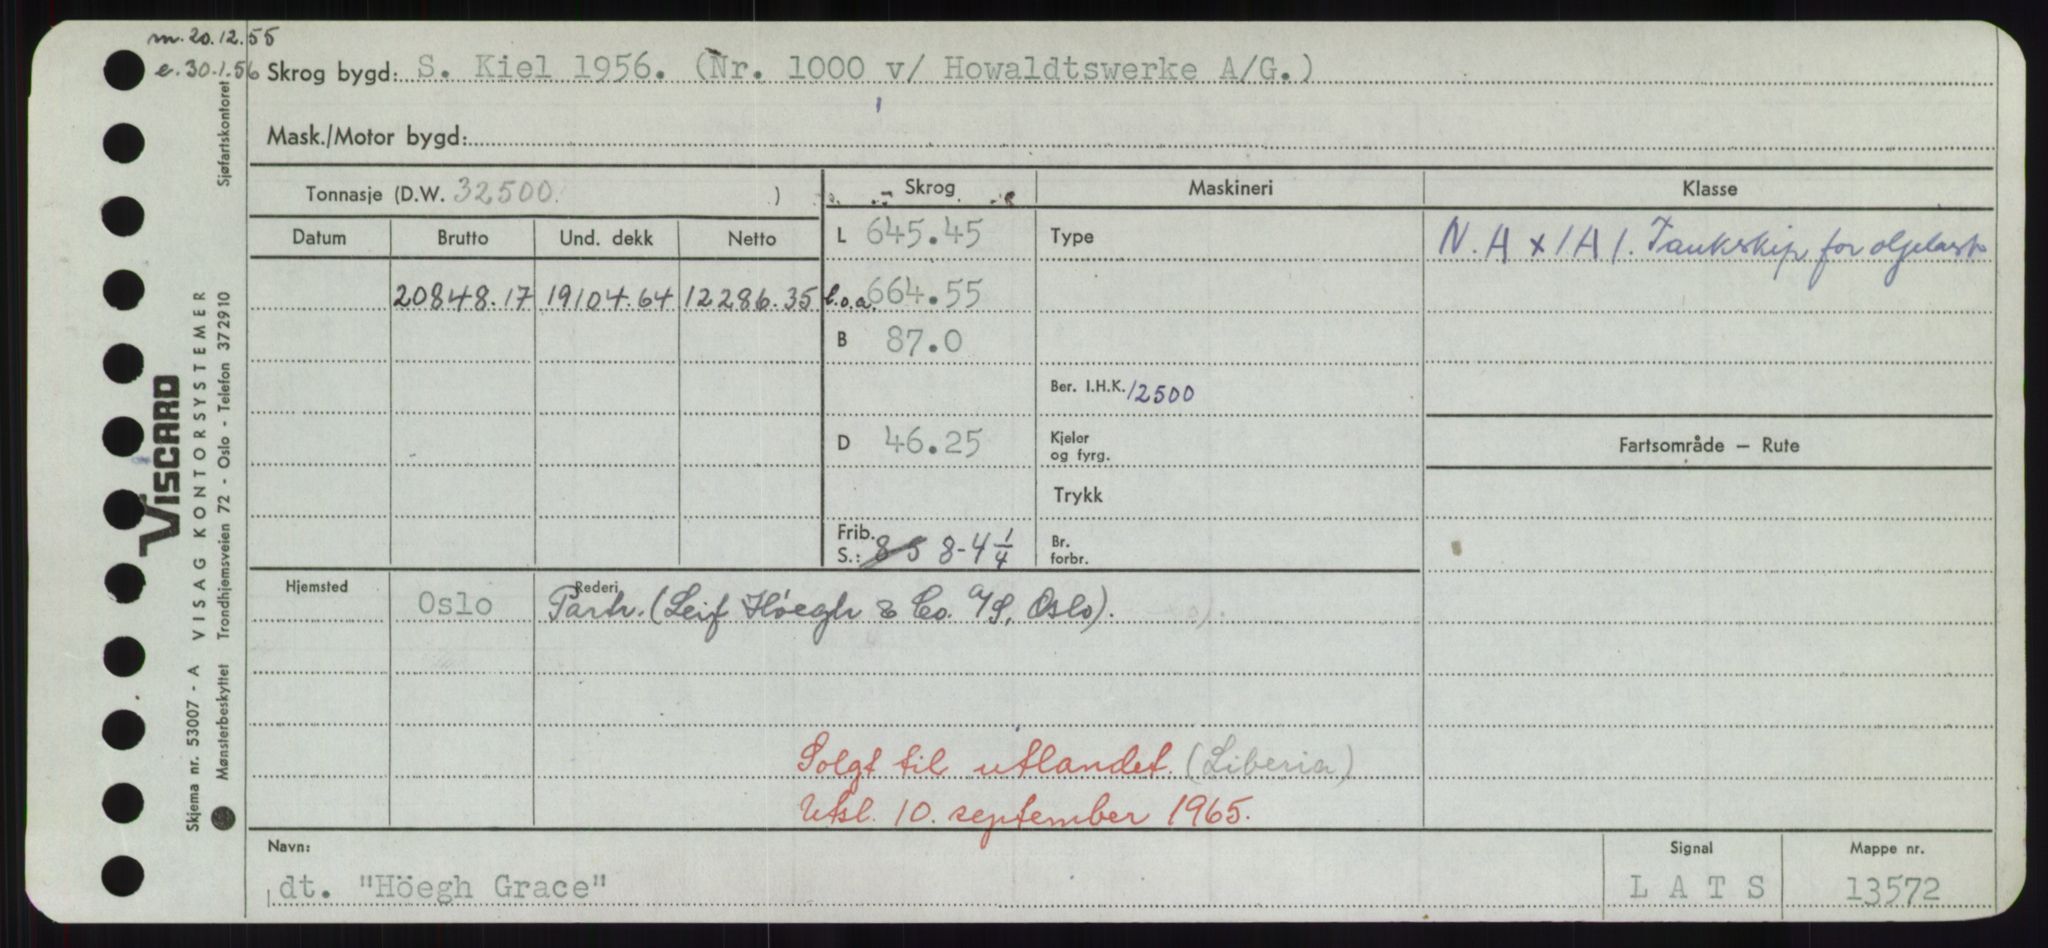 m. 20.12.55
e. 30.1.56 Skrog bygd: S. Kiel 1956. (Nr. 1000 v/ Howaldtswerke A/G.)
Mask./Motor bygd:
Tonnasje (D.W. 32500. ) Skrog Maskineri Klasse
Datum Brutto Und. dekk Netto L 645.45 Type N.A + 1A1. Tankskip for oljelast
20848.17 19104.64 12286.35 l.o.a. 664.55
B 87.0
Ber. I.H.K. 12500
D 46.25 Kjeler og fyrg. Fartsområde — Rute
Trykk
Frib. S.: 85 8-4 1/4 Br. forbr.
Hjemsted Oslo Rederi Partr. (Leif Höegh & Co. A/S, Oslo).
Solgt til utlandet. (Liberia)
Utsl. 10. september 1965.
Navn: Signal Mappe nr.
dt. "Höegh Grace" L A T S 13572
Skjema nr. 53007 - A VISAG KONTORSYSTEMER Sjøfartskontoret
Mønsterbeskyttet Trondhjemsveien 72 - Oslo - Telefon 372910
VISCARD